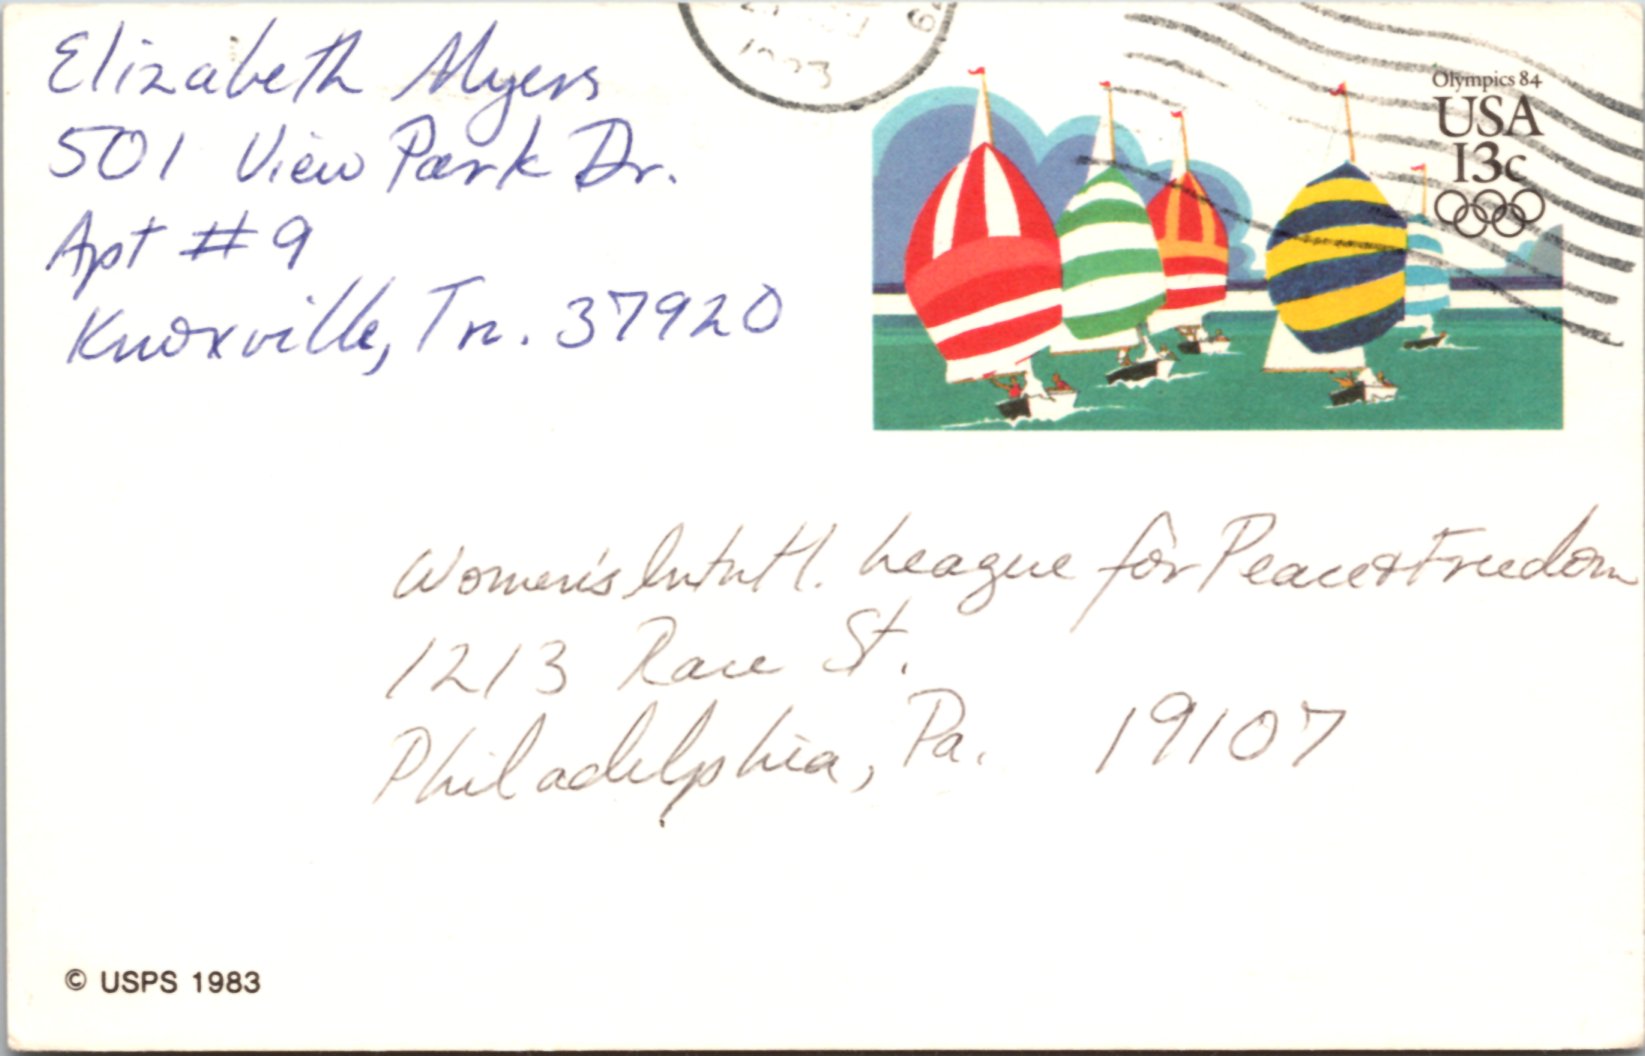 Elizabeth Myers
501 View Park Dr.
Apt #9
Knoxville, Tn. 37920
Olympics 84
USA
13c
Women's Intn'tl. League for Peace & Freedom
1213 Race St.
Philadelphia, Pa. 19107
© USPS 1983